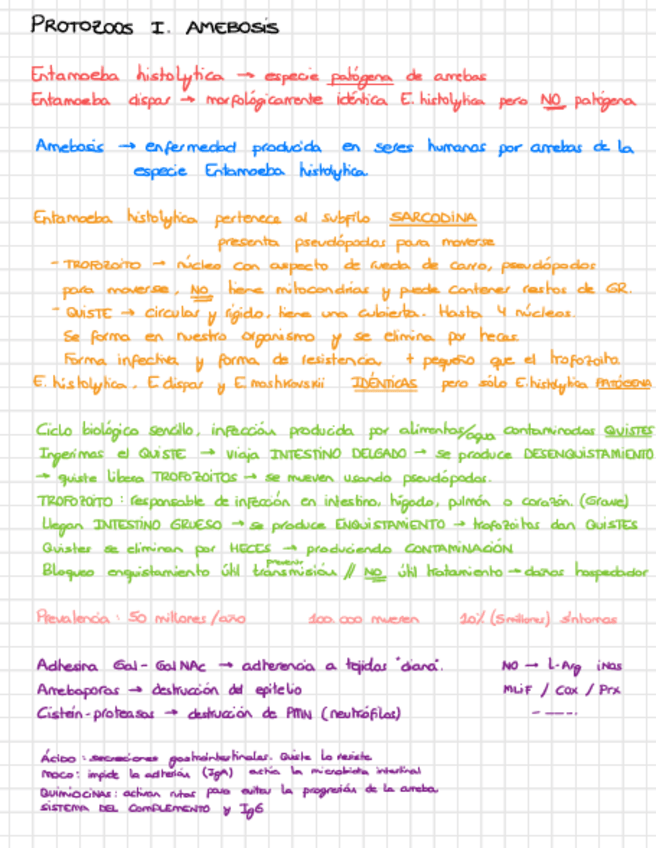 PROTOZOOS I. AMEBOSIS
Entamoeba histolytica → especie patógena de amebas
Entamoeba dispar → morfológicamente idéntica E. histolytica pero NO patógena
Amebosis → enfermedad producida en seres humanos por amebas de la
especie Entamoeba histolytica.
Entamoeba histolytica pertenece al subfilo SARCODINA
presenta pseudópodos para moverse
- TROFOZOITO → núcleo con aspecto de rueda de carro, pseudópodos
para moverse, NO tiene mitocondrias y puede contener restos de GR.
- QUISTE → circular y rígido, tiene una cubierta. Hasta 4 núcleos.
Se forma en nuestro organismo y se elimina por heces.
Forma infectiva y forma de resistencia, + pequeño que el trofozoito.
E. histolytica, E dispar y E moshkovskii IDÉNTICAS pero sólo E. histolytica PATÓGENA
Ciclo biológico sencillo, infección producida por alimentos/agua contaminados QUISTES
Ingerimos el QUISTE → viaja INTESTINO DELGADO → se produce DESENQUISTAMIENTO
→ quiste libera TROFOZOITOS → se mueven usando pseudópodos.
TROFOZOITO: responsable de infección en intestino, hígado, pulmón o corazón. (Grave)
Llegan INTESTINO GRUESO → se produce ENQUISTAMIENTO → trofozoitos dan QUISTES
Quistes se eliminan por HECES → produciendo CONTAMINACIÓN
Bloqueo enquistamiento útil prevenir transmisión // NO útil tratamiento → daños hospedador
Prevalencia: 50 millones/año 100.000 mueren 10% (5 millones) síntomas
Adhesina Gal-GalNAc → adherencia a tejidos "diana". NO → L-Arg iNos
Amebaporos → destrucción del epitelio MLiF / Cox / Prx
Cisteín-proteasas → destrucción de PMN (neutrófilos)
Ácido: secreciones gastrointestinales. Quiste lo resiste
Moco: impide la adhesión (IgA) activa la microbiota intestinal
QUIMIOCINAS: activan rutas para evitar la progresión de la ameba
SISTEMA DEL COMPLEMENTO y IgG